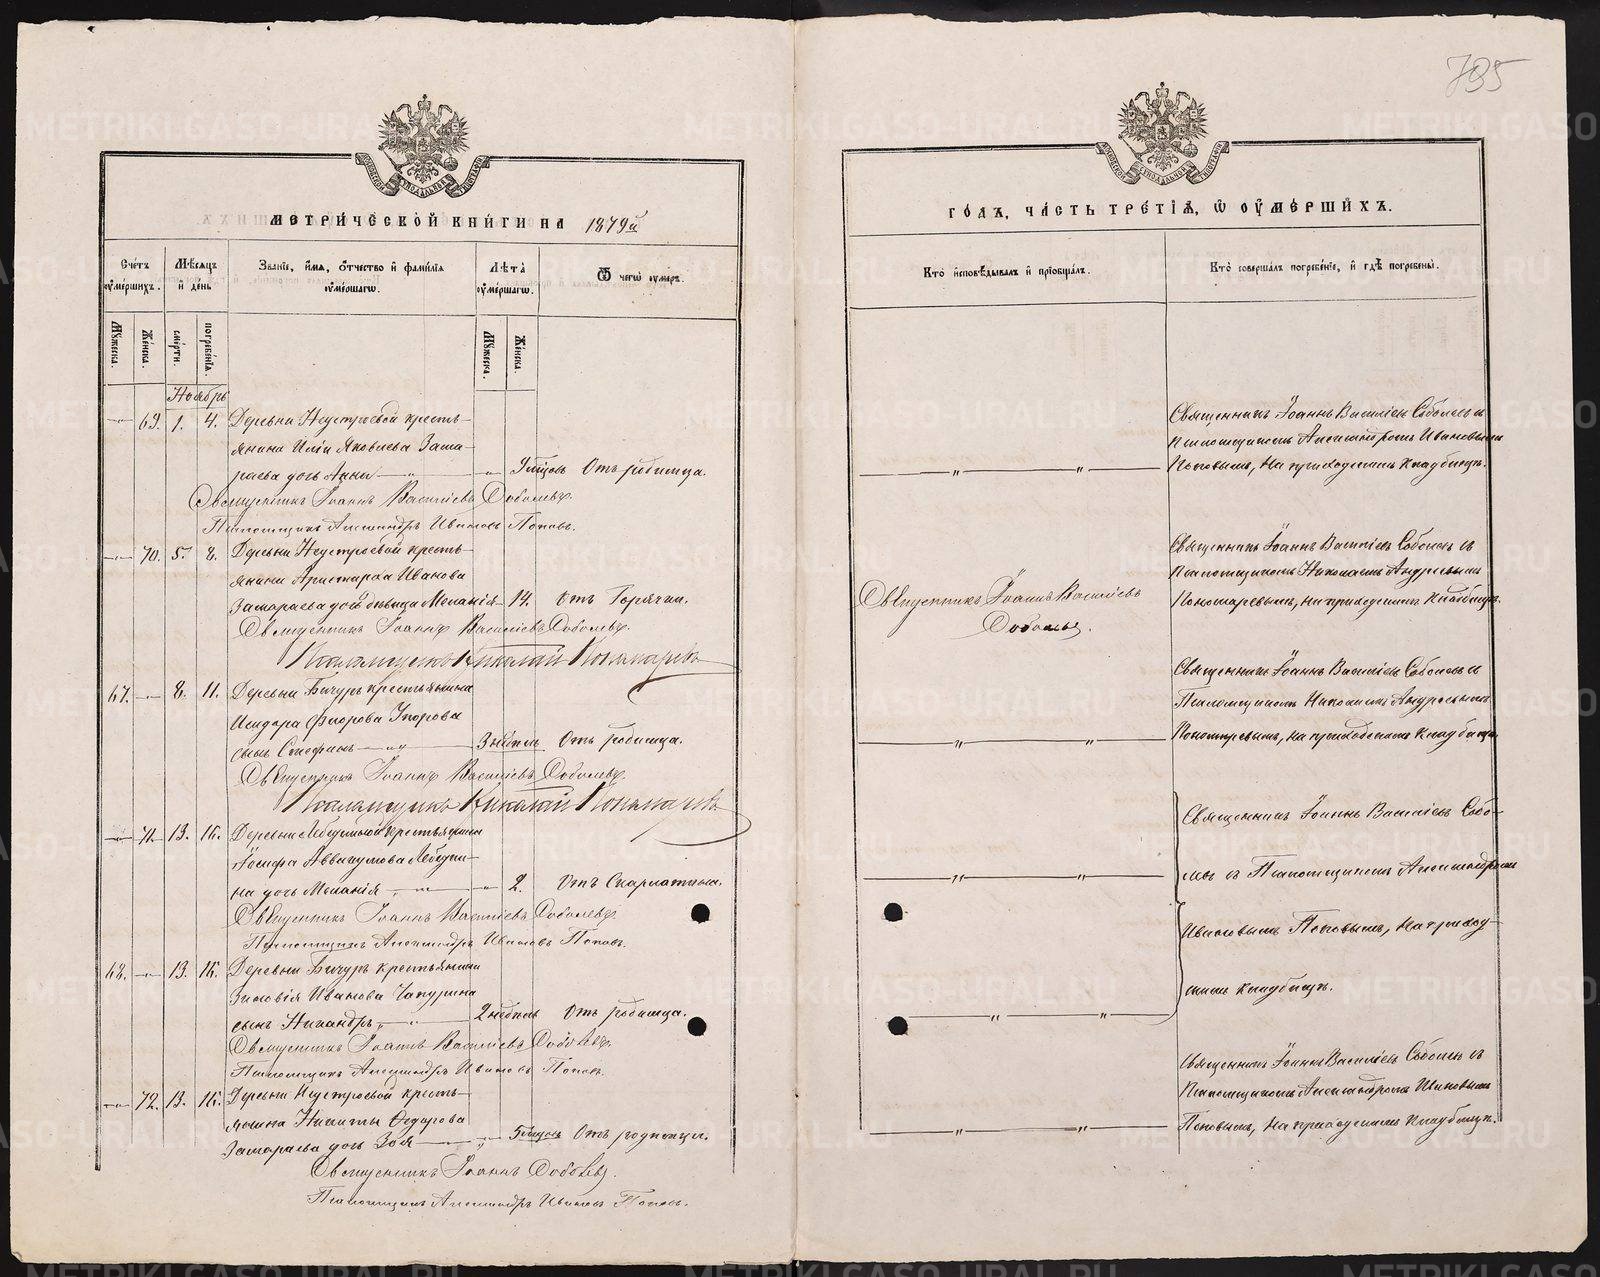 785
МЕТРИЧЕСКОЙ КНИГИ НА 1879й
Счетъ умершихъ.
Мѣсяцъ и день
Званіе, имя, отчество и фамилія умершаго.
Лѣта умершаго.
Отъ чего умеръ.
Мужеска.
Женска.
смерти.
погребенія.
Мужеска.
Женска.
Ноябрь
69. 1. 4. Деревни Неустроевой кресть-
янина Иліи Яковлева Зама-
раева дочь Анна — 9 мѣсяцовъ Отъ родимца.
Священникъ Іоаннъ Васильевъ Соболевъ.
Псаломщикъ Александръ Ивановъ Поповъ.
70. 5. 8. Деревни Неустроевой кресть-
янина Аристарха Иванова
Замараева дочь девица Меланія — 14. отъ Горячки.
Священникъ Іоаннъ Васильевъ Соболевъ.
Псаломщикъ Николай Пономаревъ
67. 8. 11. Деревни Бичуръ крестьянина
Исидора Упорова
сынъ Стефанъ — 3 недѣли Отъ родимца.
Священникъ Іоаннъ Васильевъ Соболевъ.
Псаломщикъ Николай Пономаревъ
71. 13. 16. Деревни крестьянина
Іосифа Аввакумова
на дочь Меланія — 2. Отъ Скарлатины.
Священникъ Іоаннъ Васильевъ Соболевъ
Псаломщикъ Александръ Ивановъ Поповъ.
68. 13. 16. Деревни Бичуръ крестьянина
Зиновія Иванова Чапурина
сынъ Никандръ — 2 недѣли Отъ родимца.
Священникъ Іоаннъ Васильевъ Соболевъ.
Псаломщикъ Александръ Ивановъ Поповъ.
72. 13. 16. Деревни Неустроевой кресть-
янина Никиты Ѳедорова
Замараева дочь Зоя — 5 мѣсяцовъ Отъ родимца.
Священникъ Іоаннъ Соболевъ.
Псаломщикъ Александръ Ивановъ Поповъ.
ГОДЪ, ЧАСТЬ ТРЕТІЯ, Ѡ УМЕРШИХЪ.
Кто исповѣдывалъ и пріобщалъ.
Кто совершалъ погребеніе, и гдѣ погребены.
Священникъ Іоаннъ Васильевъ Соболевъ съ
Псаломщикомъ Александромъ Ивановымъ
Поповымъ, на приходскомъ кладбищѣ.
Священникъ Іоаннъ Васильевъ
Соболевъ.
Священникъ Іоаннъ Васильевъ Соболевъ съ
Псаломщикомъ Николаемъ Андреевымъ
Пономаревымъ, на приходскомъ кладбищѣ.
Священникъ Іоаннъ Васильевъ Соболевъ съ
Псаломщикомъ Николаемъ Андреевымъ
Пономаревымъ, на приходскомъ кладбищѣ.
Священникъ Іоаннъ Васильевъ Собо-
левъ съ Псаломщикомъ Александромъ
Ивановымъ Поповымъ, на приход-
скомъ кладбищѣ.
Священникъ Іоаннъ Васильевъ Соболевъ съ
Псаломщикомъ Александромъ Ивановымъ
Поповымъ, на приходскомъ кладбищѣ.
METRIKI.GASO-URAL.RU